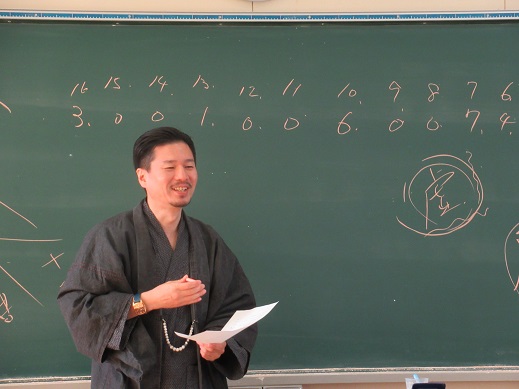 16. 15. 14. 13. 12. 11 10. 9. 8 7 6
3. 0 0 1. 0. 0 6. 0 0. 7. 4.